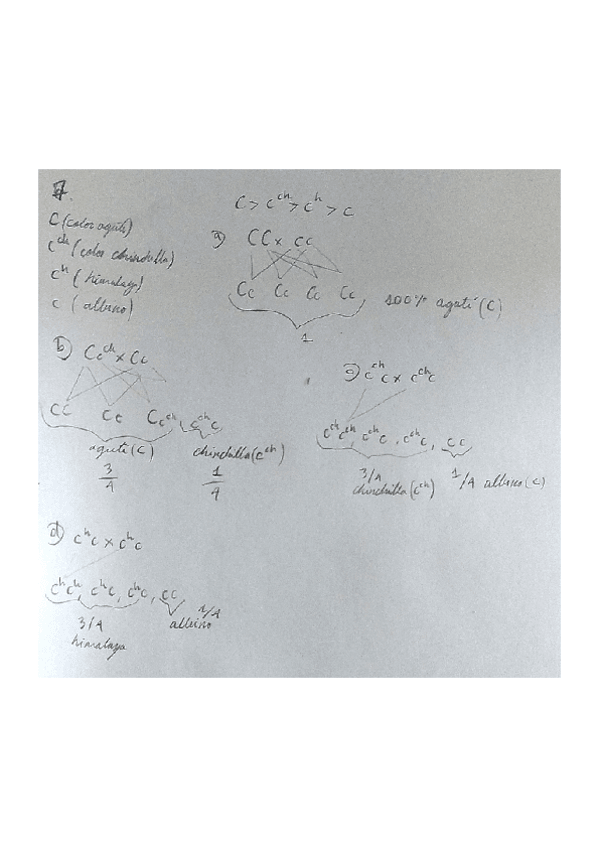 7.
C (color agutí)
c^ch (color chinchilla)
c^h (himalaya)
c (albino)
C > c^ch > c^h > c
a) CC x cc
Cc Cc Cc Cc, 100% agutí (C)
1
b) Cc^ch x Cc
CC Cc Cc^ch, c^ch c
agutí (C) chinchilla (c^ch)
3/4 1/4
c) c^ch c x c^ch c
c^ch c^ch, c^ch c, c^ch c, cc
3/4 1/4 albino (c)
chinchilla (c^ch)
d) c^h c x c^h c
c^h c^h, c^h c, c^h c, cc
3/4 1/4
himalaya albino